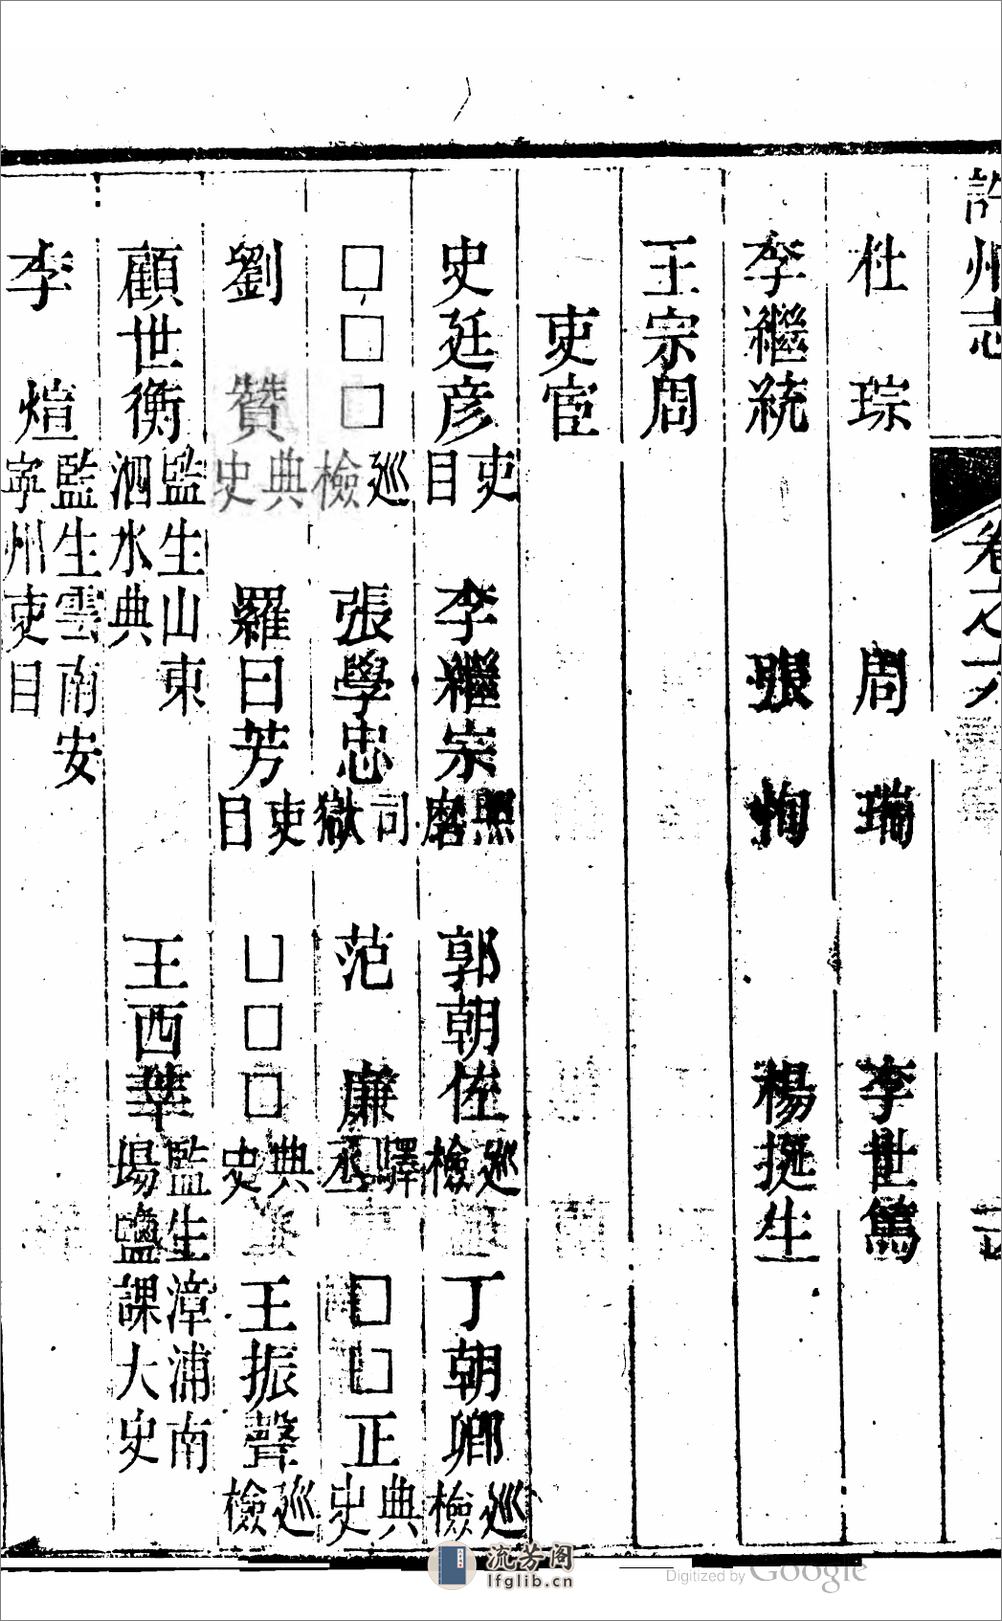 許州志 卷之六
杜琮 周瑞 李世篤
李繼統 張恂 楊挺生
王宗周
吏宦
史廷彦吏目 李繼宗照磨 郭朝佐巡檢 丁朝卿巡檢
□□□巡檢 張學忠司獄 范廉驛丞 □□正典史
劉贊典史 羅曰芳吏目 □□□典史 王振聲巡檢
顧世衡監生山東泗水典 王西華監生漳浦南場鹽課大史
李煊監生雲南安寧州吏目
流芳阁
lfglib.cn
Digitized by Google